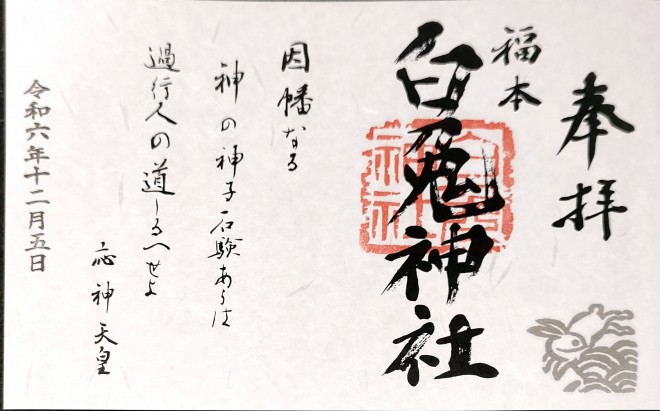 奉拝
福本
白兎神社
因幡なる
神の神子石験あらは
過行人の道しるへせよ
応神天皇
令和六年十二月五日